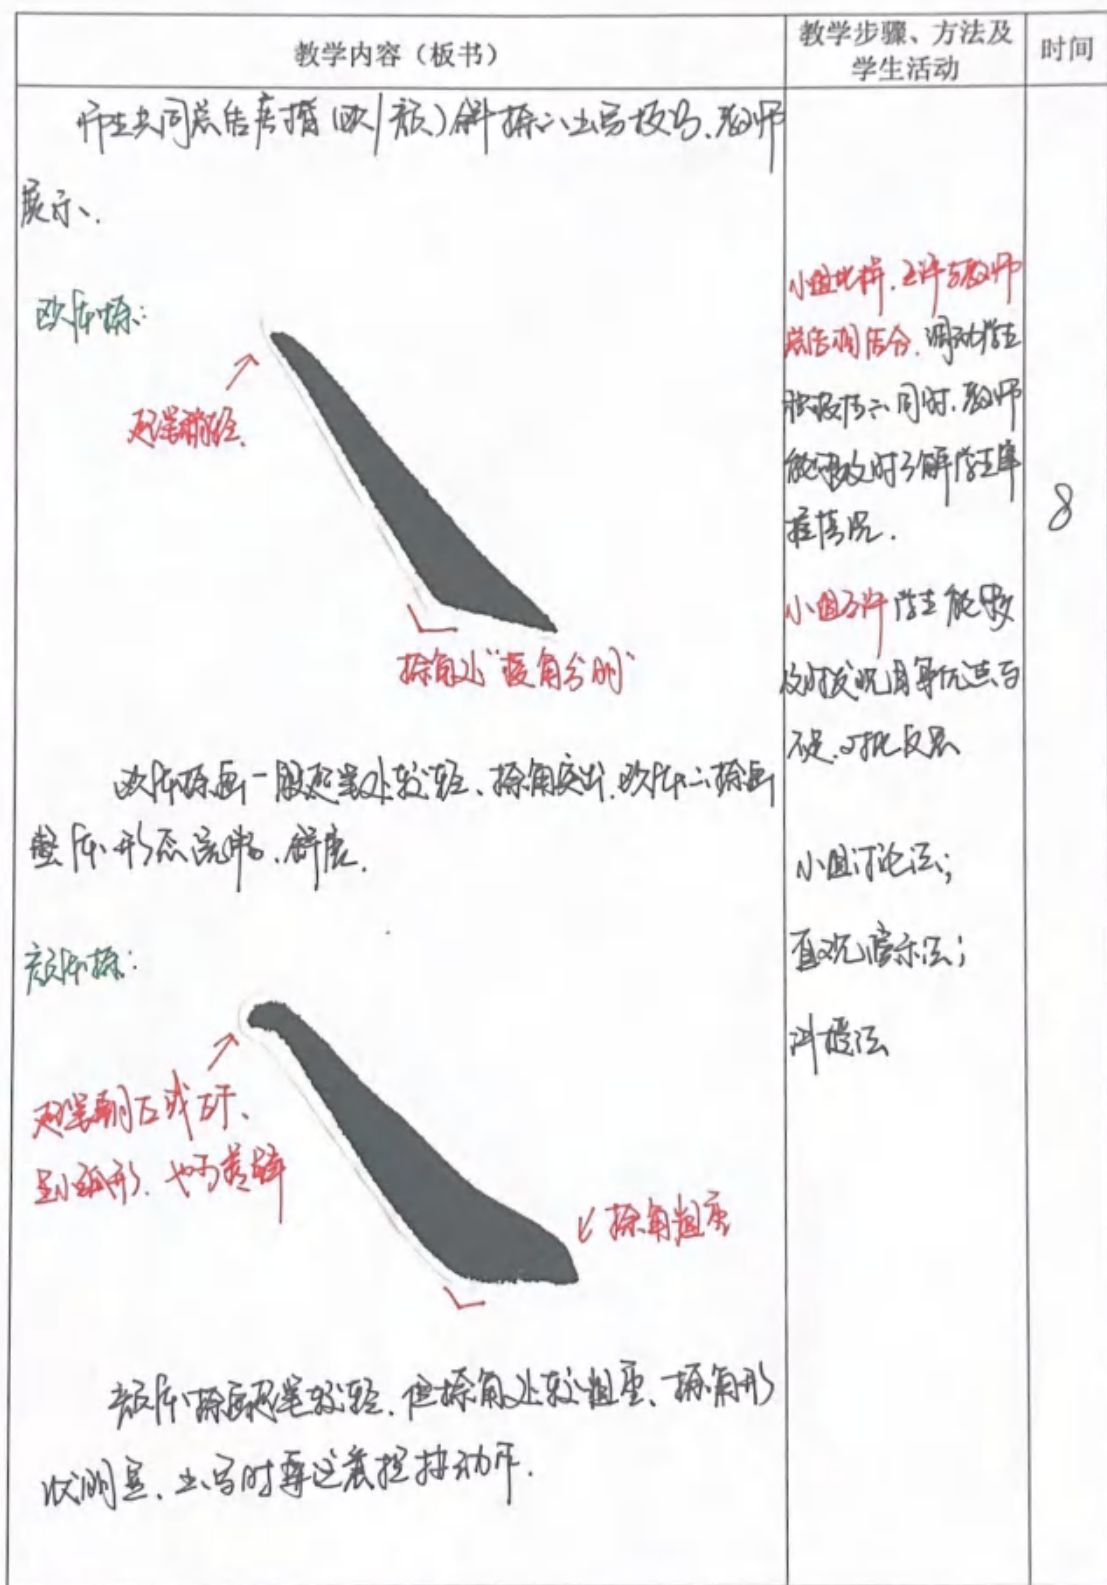 教学内容（板书）
教学步骤、方法及
学生活动
时间
师生共同总结唐楷（欧/颜）斜捺的书写技巧、教师
展示、
欧体捺：
起笔稍轻
捺角处“棱角分明”
欧体捺画一般起笔处较轻、捺角突出、欧体的捺画
整体形态流畅、舒展.
颜体捺：
起笔朝左或下、
呈小弧形、也可藏锋
捺角粗重
颜体捺画起笔较轻、但捺角处较粗重、捺角形
状明显、书写时要注意提按动作.
小组比拼、互评与教师
总结相结合、调动学生
积极性的同时、教师
能够及时了解学生掌
握情况.
小组互评 学生能够
及时发现自身优点与
不足、对比反思
小组讨论法；
直观演示法；
讲授法
8